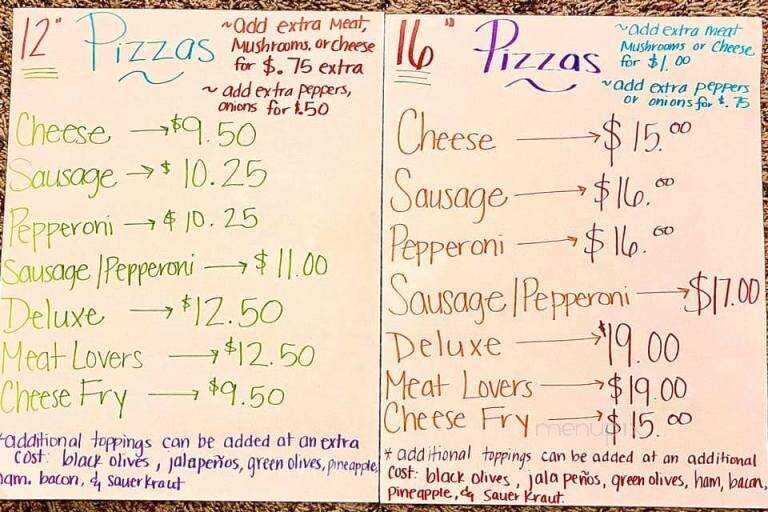 12" Pizzas
~Add extra Meat,
Mushrooms, or cheese
for $.75 extra
~ add extra peppers,
onions for $.50
Cheese → $9.50
Sausage → $10.25
Pepperoni → $10.25
Sausage/Pepperoni → $11.00
Deluxe → $12.50
Meat Lovers → $12.50
Cheese Fry → $9.50
*additional toppings can be added at an extra
cost: black olives, jalapeños, green olives, pineapple,
ham, bacon, & sauerkraut
16" Pizzas
~add extra meat
Mushrooms or Cheese
for $1.00
~add extra peppers
or onions for $.75
Cheese → $15.00
Sausage → $16.00
Pepperoni → $16.00
Sausage/Pepperoni → $17.00
Deluxe → $19.00
Meat Lovers → $19.00
Cheese Fry → $15.00
* additional toppings can be added at an additional
cost: black olives, jalapeños, green olives, ham, bacon,
pineapple, & sauerkraut.